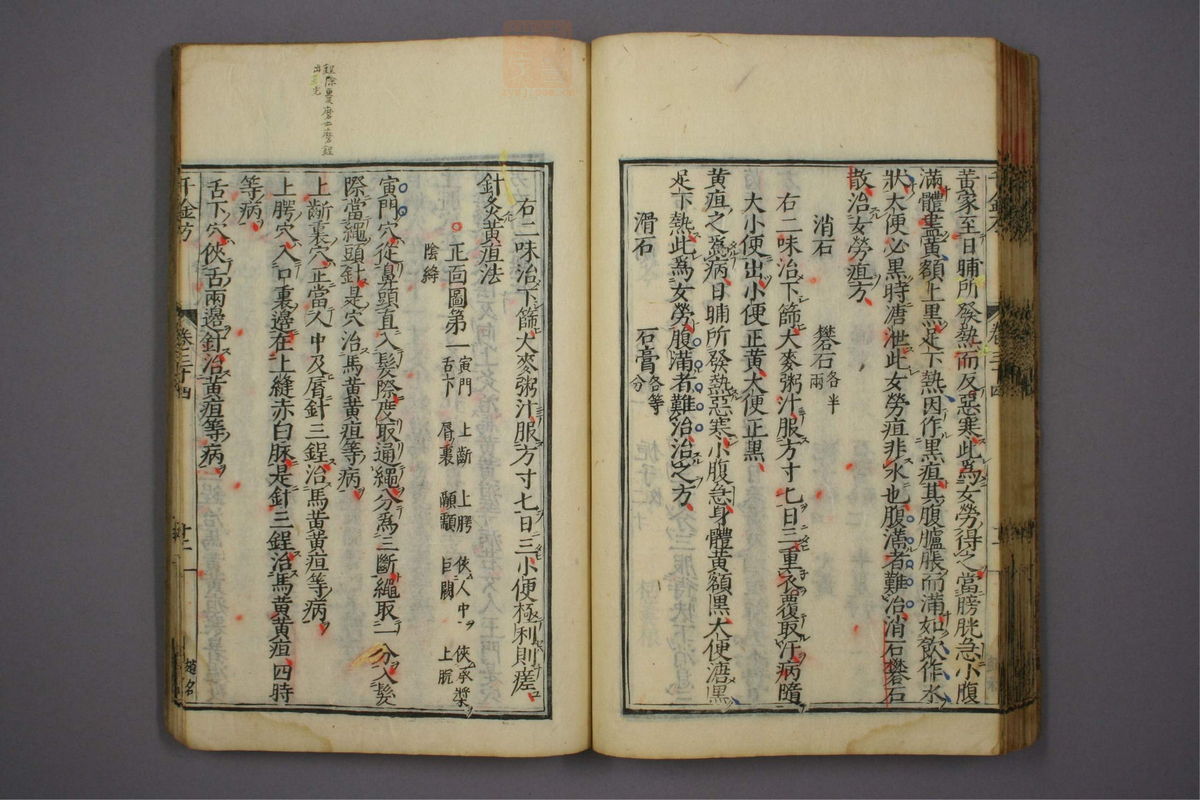 黃家至日晡所發熱而反惡寒此爲女勞得之當膀胱急小腹
滿體盡黃額上黑足下熱因作黑疸其腹臚脹而滿如飮作水
狀大便必黑時溏泄此女勞疸非水也腹滿者難治消石礬石
散治女勞疸方
消石 礬石各半兩
右二味治下篩大麥粥汁服方寸匕日三重衣覆取汗病隨
大小便出小便正黃大便正黑
黃疸之爲病日晡所發熱惡寒小腹急身體黃額黑大便溏黑
足下熱此爲女勞腹滿者難治治之方
滑石 石膏各等分
右二味治下篩大麥粥汁服方寸匕日三小便極利則瘥
針灸黃疸法
正面圖第一寅門 上齗 上腭 俠人中 俠承漿
舌下 脣裏 顳顬 巨闕 上脘
陰縫
寅門穴從鼻頭直入髮際度取通繩分爲三斷繩取一分入髮
際當繩頭針是穴治馬黃黃疸等病
上齗裏穴正當人中及脣針三鋥治馬黃黃疸等病
上腭穴入口裏邊在上縫赤白脉是針三鋥治馬黃黃疸四時
等病
舌下穴俠舌兩邊針治黃疸等病
千金方
卷三十四